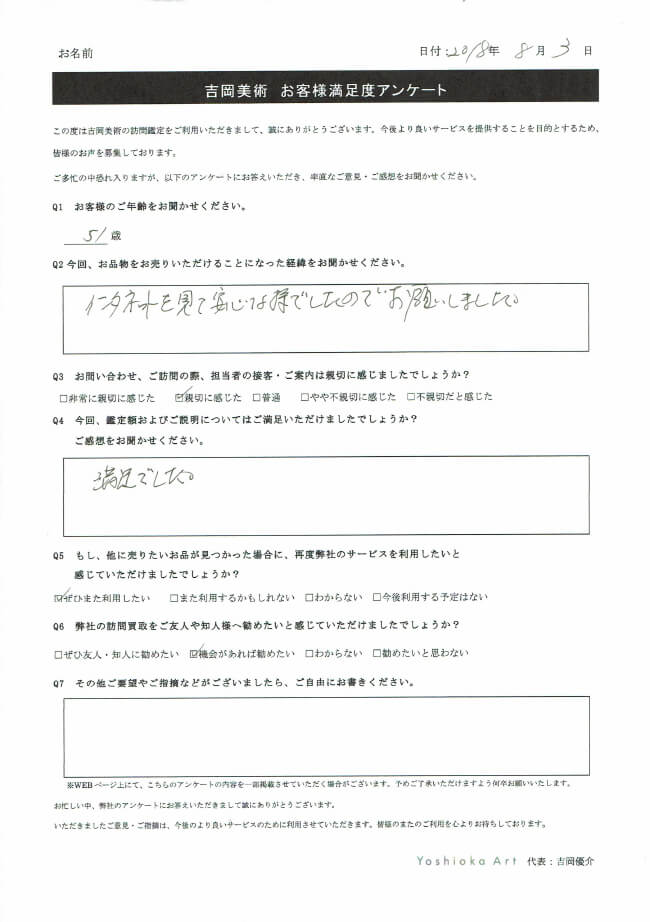 お名前
日付：2018年 8月 3日
吉岡美術 お客様満足度アンケート
この度は吉岡美術の訪問鑑定をご利用いただきまして、誠にありがとうございます。今後より良いサービスを提供することを目的とするため、
皆様のお声を募集しております。
ご多忙の中恐れ入りますが、以下のアンケートにお答えいただき、率直なご意見・ご感想をお聞かせください。
Q1 お客様のご年齢をお聞かせください。
51歳
Q2 今回、お品物をお売りいただけることになった経緯をお聞かせください。
インタネットを見て安心な様でしたのでお願いしました。
Q3 お問い合わせ、ご訪問の際、担当者の接客・ご案内は親切に感じましたでしょうか？
□非常に親切に感じた ☑親切に感じた □普通 □やや不親切に感じた □不親切だと感じた
Q4 今回、鑑定額およびご説明についてはご満足いただけましたでしょうか？
ご感想をお聞かせください。
満足でした。
Q5 もし、他に売りたいお品が見つかった場合に、再度弊社のサービスを利用したいと
感じていただけましたでしょうか？
☑ぜひまた利用したい □また利用するかもしれない □わからない □今後利用する予定はない
Q6 弊社の訪問買取をご友人や知人様へ勧めたいと感じていただけましたでしょうか？
□ぜひ友人・知人に勧めたい ☑機会があれば勧めたい □わからない □勧めたいと思わない
Q7 その他ご要望やご指摘などがございましたら、ご自由にお書きください。
※WEBページ上にて、こちらのアンケートの内容を一部掲載させていただく場合がございます。予めご了承いただけますよう何卒お願いいたします。
お忙しい中、弊社のアンケートにお答えいただきまして誠にありがとうございます。
いただきましたご意見・ご指摘は、今後のより良いサービスのために利用させていただきます。皆様のまたのご利用を心よりお待ちしております。
Yoshioka Art 代表：吉岡優介